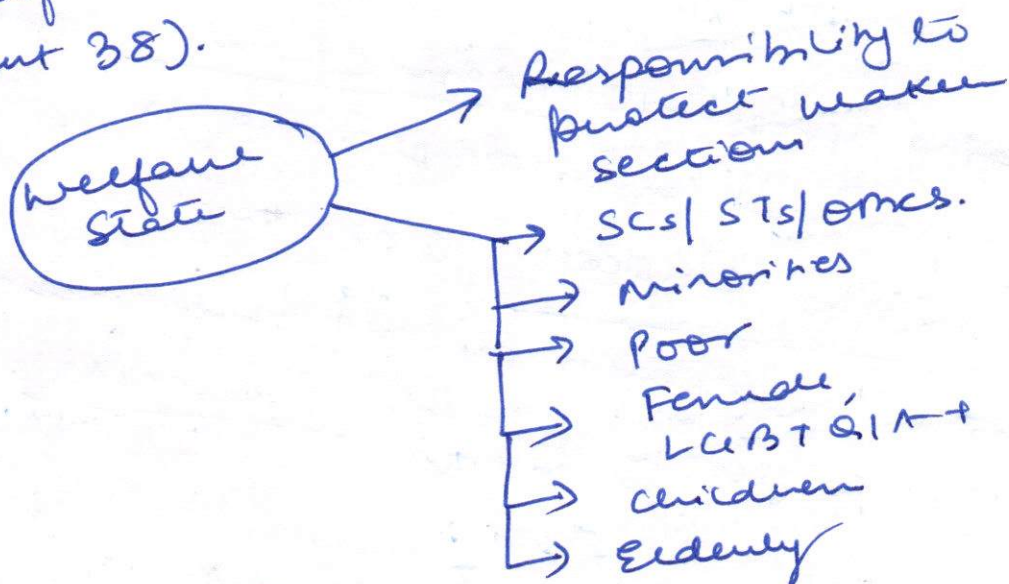 38).
Welfare
State
Responsibility to
protect weaker
sections
SCs/ STs/
Minorities
Poor
Female,
LGBTQIA+
children
Elderly